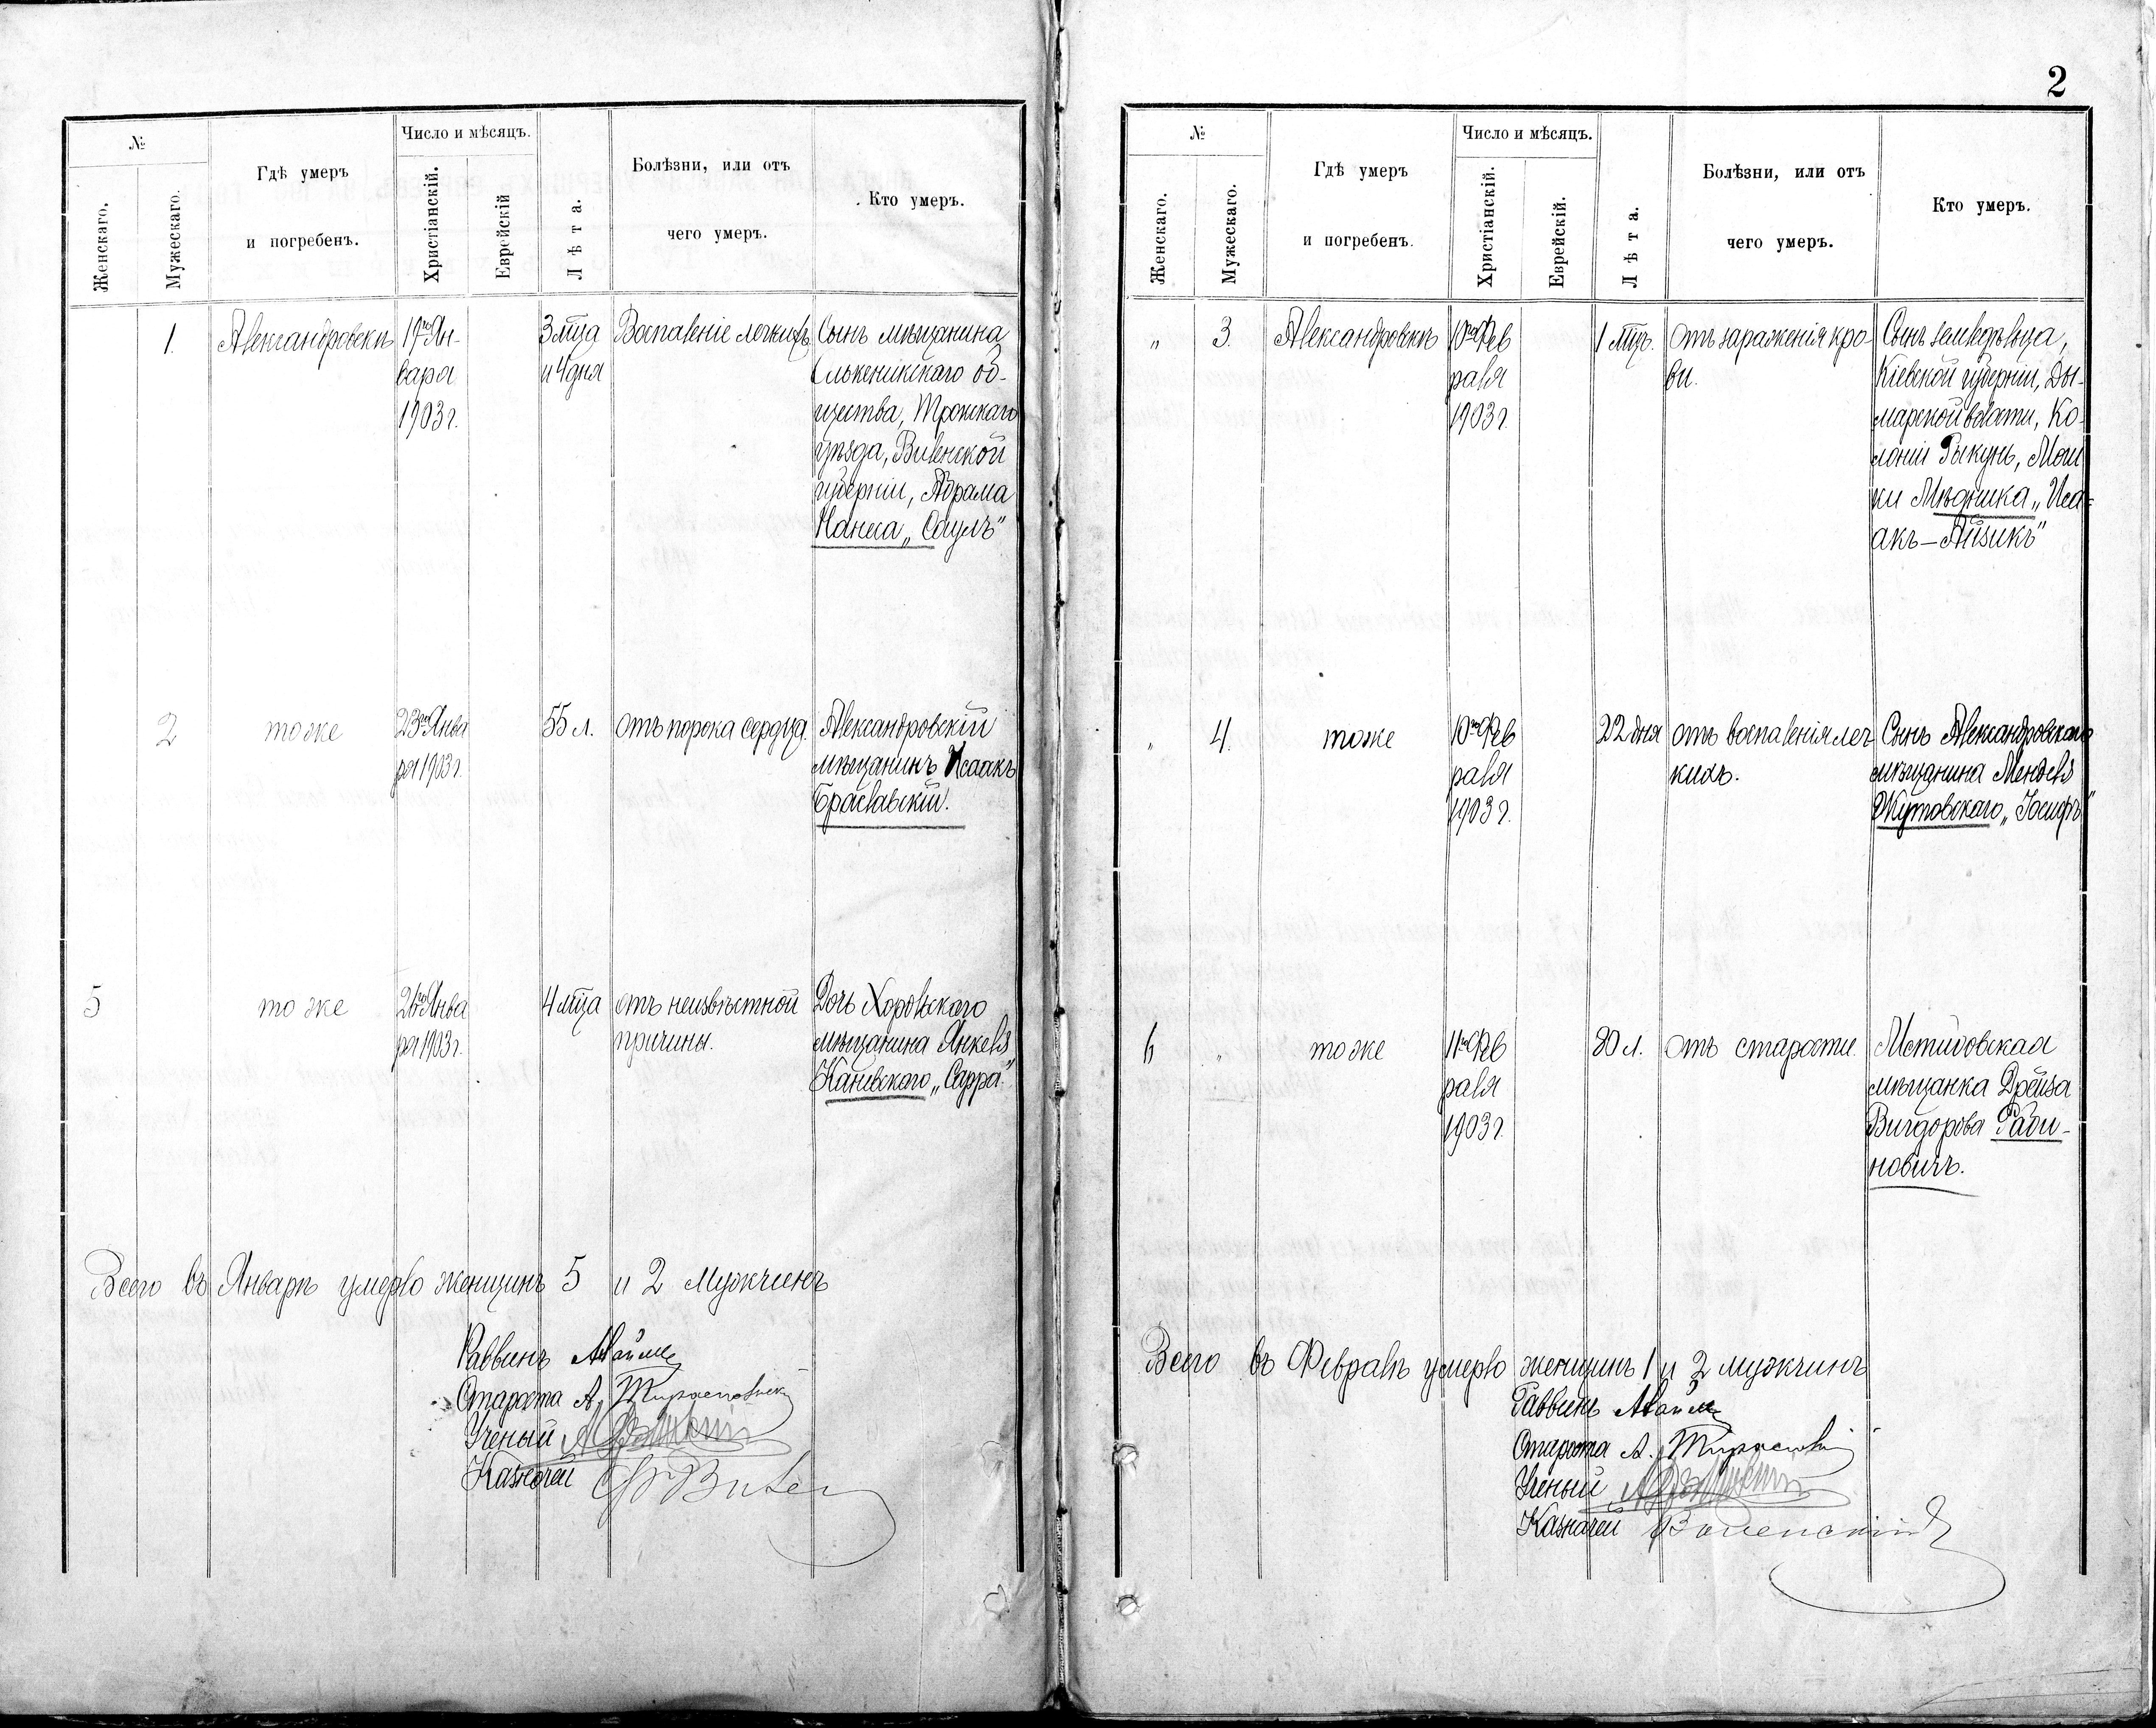 2
№
Женскаго.
Мужескаго.
Гдѣ умеръ
и погребенъ.
Число и мѣсяцъ.
Христіанскій.
Еврейскій
Лѣта.
Болѣзни, или отъ
чего умеръ.
Кто умеръ.
1.
Александровскъ
19го Ян-
варя
1903 г.
3 м-ца
и 4 дня
Воспаленіе легкихъ
Сынъ мѣщанина
Олькеникскаго об-
щества, Трокскаго
уѣзда, Виленской
губерніи, Абрама
„Саулъ"
2
тоже
23го Янва
ря 1903 г.
55 л.
отъ порока сердца.
Александровскій
мѣщанинъ Исаакъ
Браславскій.
5
тоже
Янва
ря 1903 г.
4 м-ца
отъ неизвѣстной
причины.
Дочь Хорольскаго
мѣщанина Янкеля
Каневского „Сарра"
Всего въ Январѣ умерло женщинъ 5 и 2 Мужчинъ
Раввинъ
Староста А.
Ученый
Казначей
№
Женскаго.
Мужескаго.
Гдѣ умеръ
и погребенъ.
Число и мѣсяцъ.
Христіанскій.
Еврейскій.
Лѣта.
Болѣзни, или отъ
чего умеръ.
Кто умеръ.
„
3.
Александровскъ
10го Фев
раля
1903 г.
1 м-цъ.
отъ зараженія кро-
ви.
Сынъ земледѣльца,
Кіевской губерніи, Ды-
марской волости, Ко-
лоніи Рыкунь, Мош
ки Мѣдника „Иса-
акъ – Айзикъ"
„
4.
тоже
10го Фев
раля
1903 г.
22 дня
отъ воспаленія лег
кихъ.
Сынъ Александровскаго
мѣщанина Менделя
Жутовскаго „Іосифъ"
6
„
тоже
11го Фев
раля
1903 г.
80 л.
отъ старости.
Мстиговская
мѣщанка Дрейза
Вигдорова Раби-
новичъ.
Всего въ Февралѣ умерло женщинъ 1 и 2 мужчинъ
Раввинъ
Староста А.
Ученый
Казначей